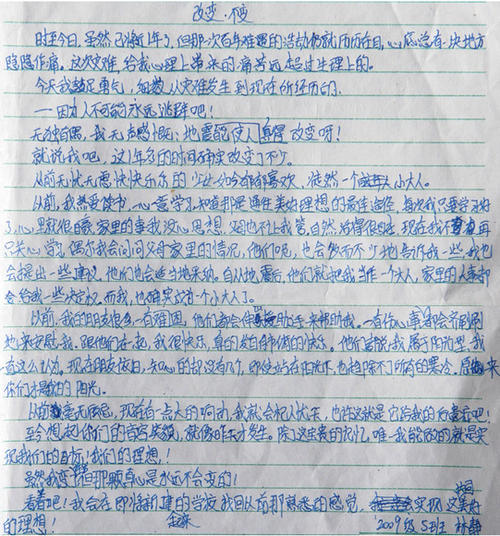 改变·不变
时至今日,虽然已将近1年了,但那一次百年难遇的浩劫仍就历历在目,心底总有一块地方
隐隐作痛。这次灾难,给我心理上带来的痛苦远超过生理上的。
今天我鼓足勇气,细数从灾难发生到现在所经历的。
——因为人不可能永远逃避吧!
无独有偶,我无声感慨:地震能使人 改变呀!
就说我吧,这1年多的时间确实改变了不少。
从前无忧无虑快快乐乐的少女如今郁郁寡欢,徒然一个小大人。
从前,我热爱读书,一心意学习,知道那是通往美好理想的最佳途径,每次我只要学习好
了,心里就很自豪,家里的事我没心思想,妈也不让我管,自然活得很自在,现在我不再
只关心学习,偶尔我会问问父母家里的情况,他们呢,也会毫不少地告诉我一些,我也
会提出一些建议,他们也会适当地采纳。自从地震后,他们就把我当作一个大人,家里的大事都
会给我一些决定权,而我,也确实成了一个小大人了。
以前,我的朋友很多,一有难困,他们都会伸出助手来帮助我。一有伤心事,都会齐刷刷
地来安慰我,跟他们在一起,我很快乐,真的发自肺腑的快乐。他们都说我属于阳光型,我
也这么认为。现在朋友依旧,知心的却没有几个,即使站在阳光下,也趋除不了所有的寒冷。原来
你们才是我的阳光。
从前毫无顾忌,现在有一点大的响动,我就会杞人忧天,也许这就是它给我的后遗症吧!
至今想起你们的音容笑貌,就像昨天才发生。除了这宝贵的记忆,唯一我能做的就是实
现我们的目标!我们的理想!
虽然我变了,但那颗真心是永远不会变的!
看着吧!我会在即将新建的学校,找回从前那熟悉的感觉,实现这美好
的理想!
2009级5班 林静